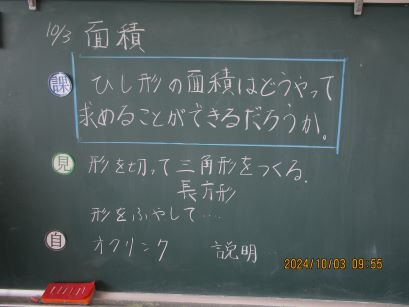 10/3 面積
課 ひし形の面積はどうやって
求めることができるだろうか。
見 形を切って三角形をつくる.
長方形
形をふやして‥‥
自 オクリンク 説明
2024/10/03 09:55